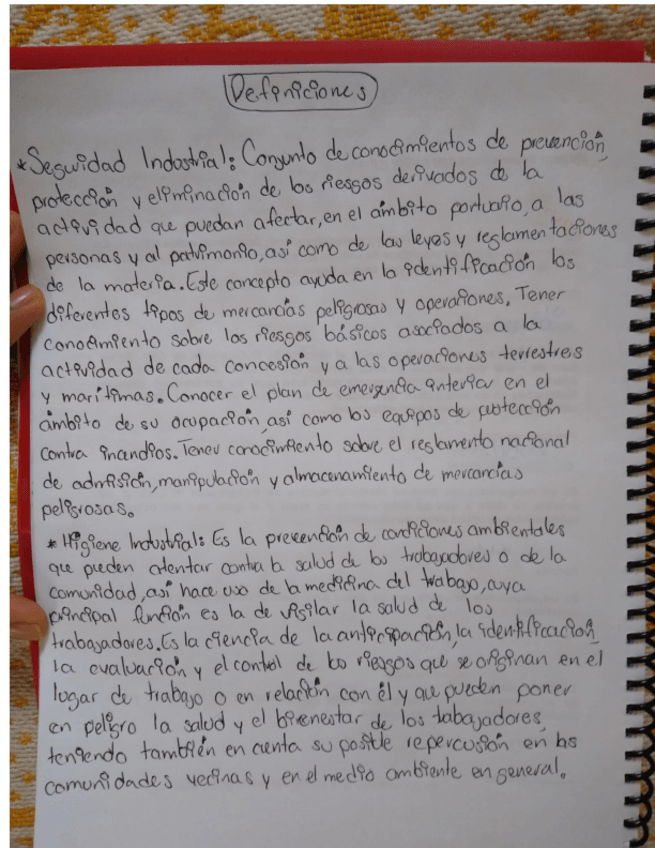 Definiciones
*Seguridad Industrial: Conjunto de conocimientos de prevención,
protección y eliminación de los riesgos derivados de la
actividad que puedan afectar, en el ámbito portuario, a las
personas y al patrimonio, así como de las leyes y reglamentaciones
de la materia. Este concepto ayuda en la identificación los
diferentes tipos de mercancías peligrosas y operaciones. Tener
conocimiento sobre los riesgos básicos asociados a la
actividad de cada concesión y a las operaciones terrestres
y marítimas. Conocer el plan de emergencia interior en el
ámbito de su ocupación, así como los equipos de protección
contra incendios. Tener conocimiento sobre el reglamento nacional
de admisión, manipulación y almacenamiento de mercancías
peligrosas.
* Higiene Industrial: Es la prevención de condiciones ambientales
que pueden atentar contra la salud de los trabajadores o de la
comunidad, así hace uso de la medicina del trabajo, cuya
principal función es la de vigilar la salud de los
trabajadores. Es la ciencia de la anticipación, la identificación,
la evaluación y el control de los riesgos que se originan en el
lugar de trabajo o en relación con él y que pueden poner
en peligro la salud y el bienestar de los trabajadores,
teniendo también en cuenta su posible repercusión en las
comunidades vecinas y en el medio ambiente en general.